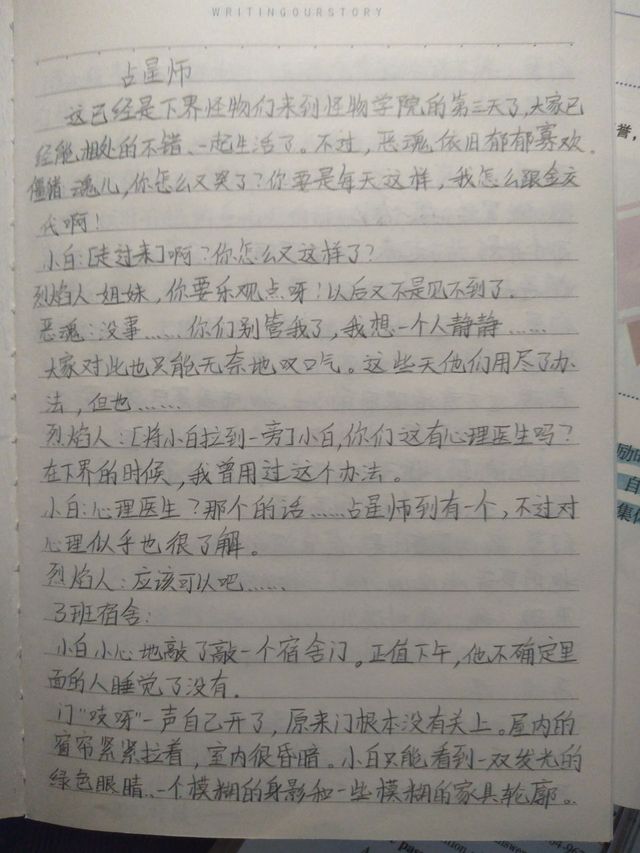 WRITINGOURSTORY
占星师
这已经是下界怪物们来到怪物学院的第三天了,大家已
经能相处的不错、一起生活了。不过，恶魂依旧郁郁寡欢.
僵猪:魂儿，你怎么又哭了?你要是每天这样，我怎么跟金交
代啊!
小白:[走过来]啊?你怎么又这样了?
烈焰人:姐妹，你要乐观点呀!以后又不是见不到了.
恶魂:没事……你们别管我了，我想一个人静静……
大家对此也只能无奈地叹口气。这些天他们用尽了办
法，但也……
烈焰人:[将小白拉到一旁]小白,你们这有心理医生吗?
在下界的时候，我曾用过这个办法。
小白:心理医生?那个的话……占星师到有一个，不过对
心理似乎也很了解。
烈焰人:应该可以吧……
3班宿舍:
小白小心地敲了敲一个宿舍门。正值下午,他不确定里
面的人睡觉了没有.
门"吱呀"一声自己开了，原来门根本没有关上。屋内的
窗帘紧紧拉着，室内很昏暗。小白只能看到一双发光的
绿色眼睛、一个模糊的身影和一些模糊的家具轮廓。
誉,
自
集体